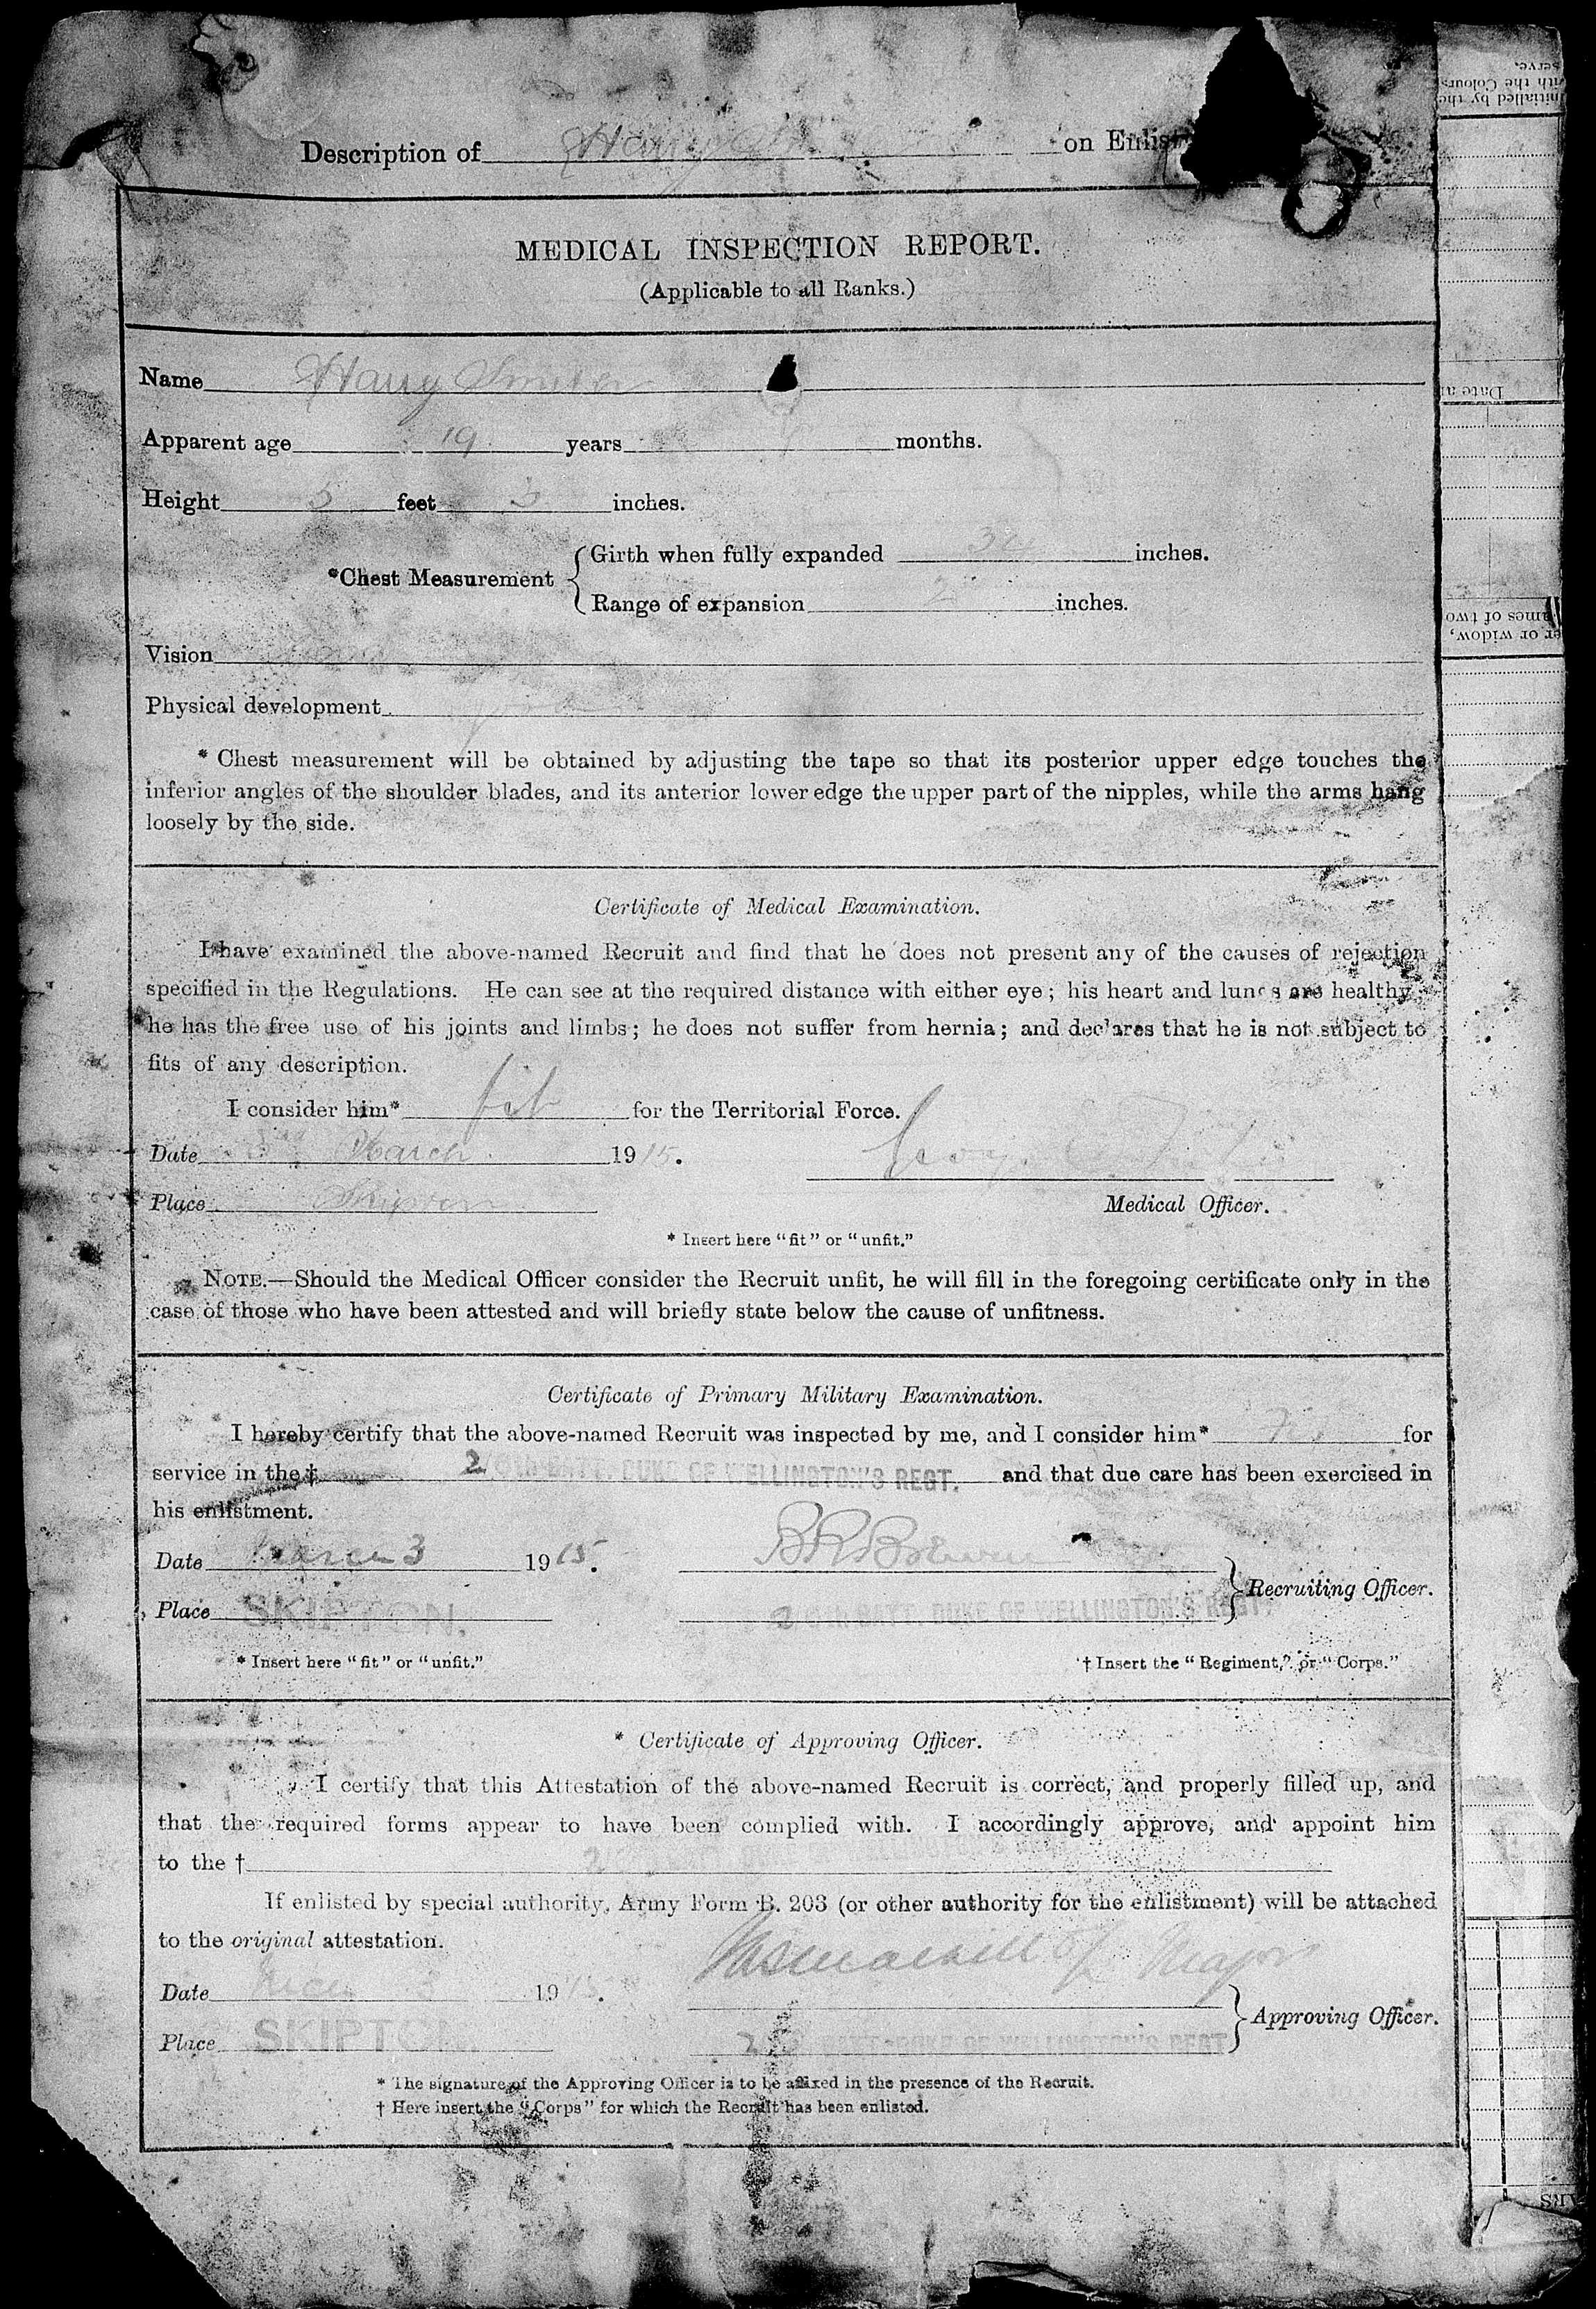 Description of Harry on Enlist
MEDICAL INSPECTION REPORT.
(Applicable to all Ranks.)
Name Harry
Apparent age 19 years months.
Height 5 feet inches.
*Chest Measurement { Girth when fully expanded inches.
Range of expansion 2 inches.
Vision
Physical development good
* Chest measurement will be obtained by adjusting the tape so that its posterior upper edge touches the
inferior angles of the shoulder blades, and its anterior lower edge the upper part of the nipples, while the arms hang
loosely by the side.
Certificate of Medical Examination.
I have examined the above-named Recruit and find that he does not present any of the causes of rejection
specified in the Regulations. He can see at the required distance with either eye; his heart and lungs are healthy;
he has the free use of his joints and limbs; he does not suffer from hernia; and declares that he is not subject to
fits of any description.
I consider him* fit for the Territorial Force.
Date 3rd March 1915.
Place Skipton
Medical Officer.
* Insert here "fit" or "unfit."
NOTE.—Should the Medical Officer consider the Recruit unfit, he will fill in the foregoing certificate only in the
case of those who have been attested and will briefly state below the cause of unfitness.
Certificate of Primary Military Examination.
I hereby certify that the above-named Recruit was inspected by me, and I consider him* Fit for
service in the † 2 6th BATT. DUKE OF WELLINGTON'S REGT. and that due care has been exercised in
his enlistment.
Date March 3 1915.
Place SKIPTON.
2 6th BATT. DUKE OF WELLINGTON'S REGT. } Recruiting Officer.
* Insert here "fit" or "unfit."
† Insert the "Regiment," or "Corps."
* Certificate of Approving Officer.
I certify that this Attestation of the above-named Recruit is correct, and properly filled up, and
that the required forms appear to have been complied with. I accordingly approve, and appoint him
to the † 2
If enlisted by special authority, Army Form B. 203 (or other authority for the enlistment) will be attached
to the original attestation.
Major
Date 3 1915.
Place SKIPTON.
2 6th BATT. DUKE OF WELLINGTON'S REGT } Approving Officer.
* The signature of the Approving Officer is to be affixed in the presence of the Recruit.
† Here insert the "Corps" for which the Recruit has been enlisted.
serve.
with the Colours
initialled by the
Date
names of two
or widow,